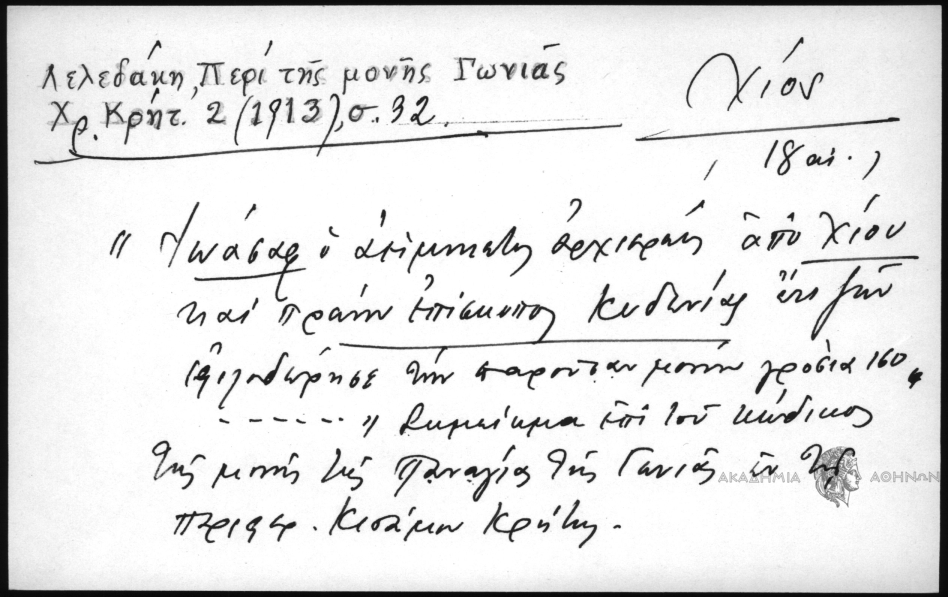 Λελεδάκη, Περί τῆς μονῆς Γωνιᾶς
Χρ. Κρήτ. 2 (1913), σ. 32.
Χίον
18 αι.
" Ἰωάσαφ ὁ ἀείμνηστος ἀρχιερεύς ἀπό Χίου
καί πρώην ἐπίσκοπος Κυδωνίας ἔτι ζῶν
ἐφιλοδώρησε τήν παροῦσαν μονήν γρόσια 160
- - - - - - " Σημείωμα ἐπί τοῦ κώδικος
τῆς μονῆς τῆς Παναγίας τῆς Γωνιᾶς ἐν τῇ
περιφερ. Κισάμου Κρήτης.
ΑΚΑΔΗΜΙΑ ΑΘΗΝΩΝ